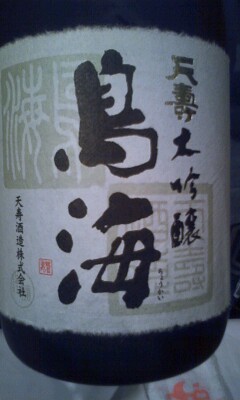 天壽
大吟醸
鳥海
ちょうかい
天寿酒造株式会社